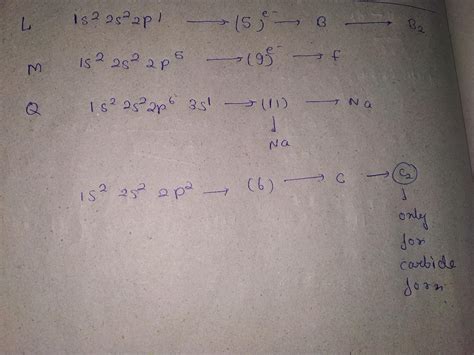 L 1s² 2s² 2p¹ → (5)e⁻ → B → B₂
M 1s² 2s² 2p⁵ → (9)e⁻ → f
Q 1s² 2s² 2p⁶ 3s¹ → (11) → Na
↓
Na
1s² 2s² 2p² → (6) → C → C₂
↓
only
for
carbide
form